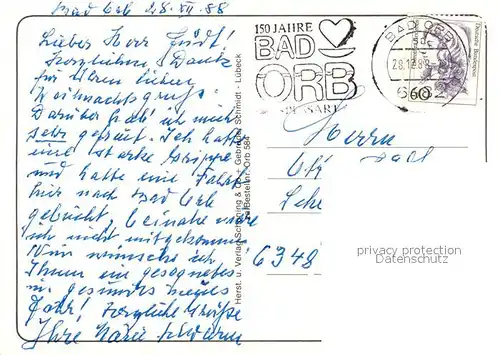 Bad Orb 28. XII. 88
Lieber Herr
Herzlichen Dank
für Ihren lieben
Weihnachtsgruß.
Darüber hab' ich mich
sehr gefreut. Ich hatte
eine starke Grippe
und hatte eine Fahrt
hier nach Bad Orb
gebucht, beinahe wäre
ich nicht mitgekommen
Nun wünsche ich
Ihnen ein gesegnetes
gesundes neues
Jahr! Herzliche Grüße
Ihre
150 JAHRE
BAD
ORB
SPESSART
BAD ORB
28.12.88
Deutsche Bundespost
60
Herrn
6348
Herst. u. Verlag Schöning & Co + Gebrüder Schmidt - Lübeck
Bestellnr. Orb 584
privacy protection
Datenschutz